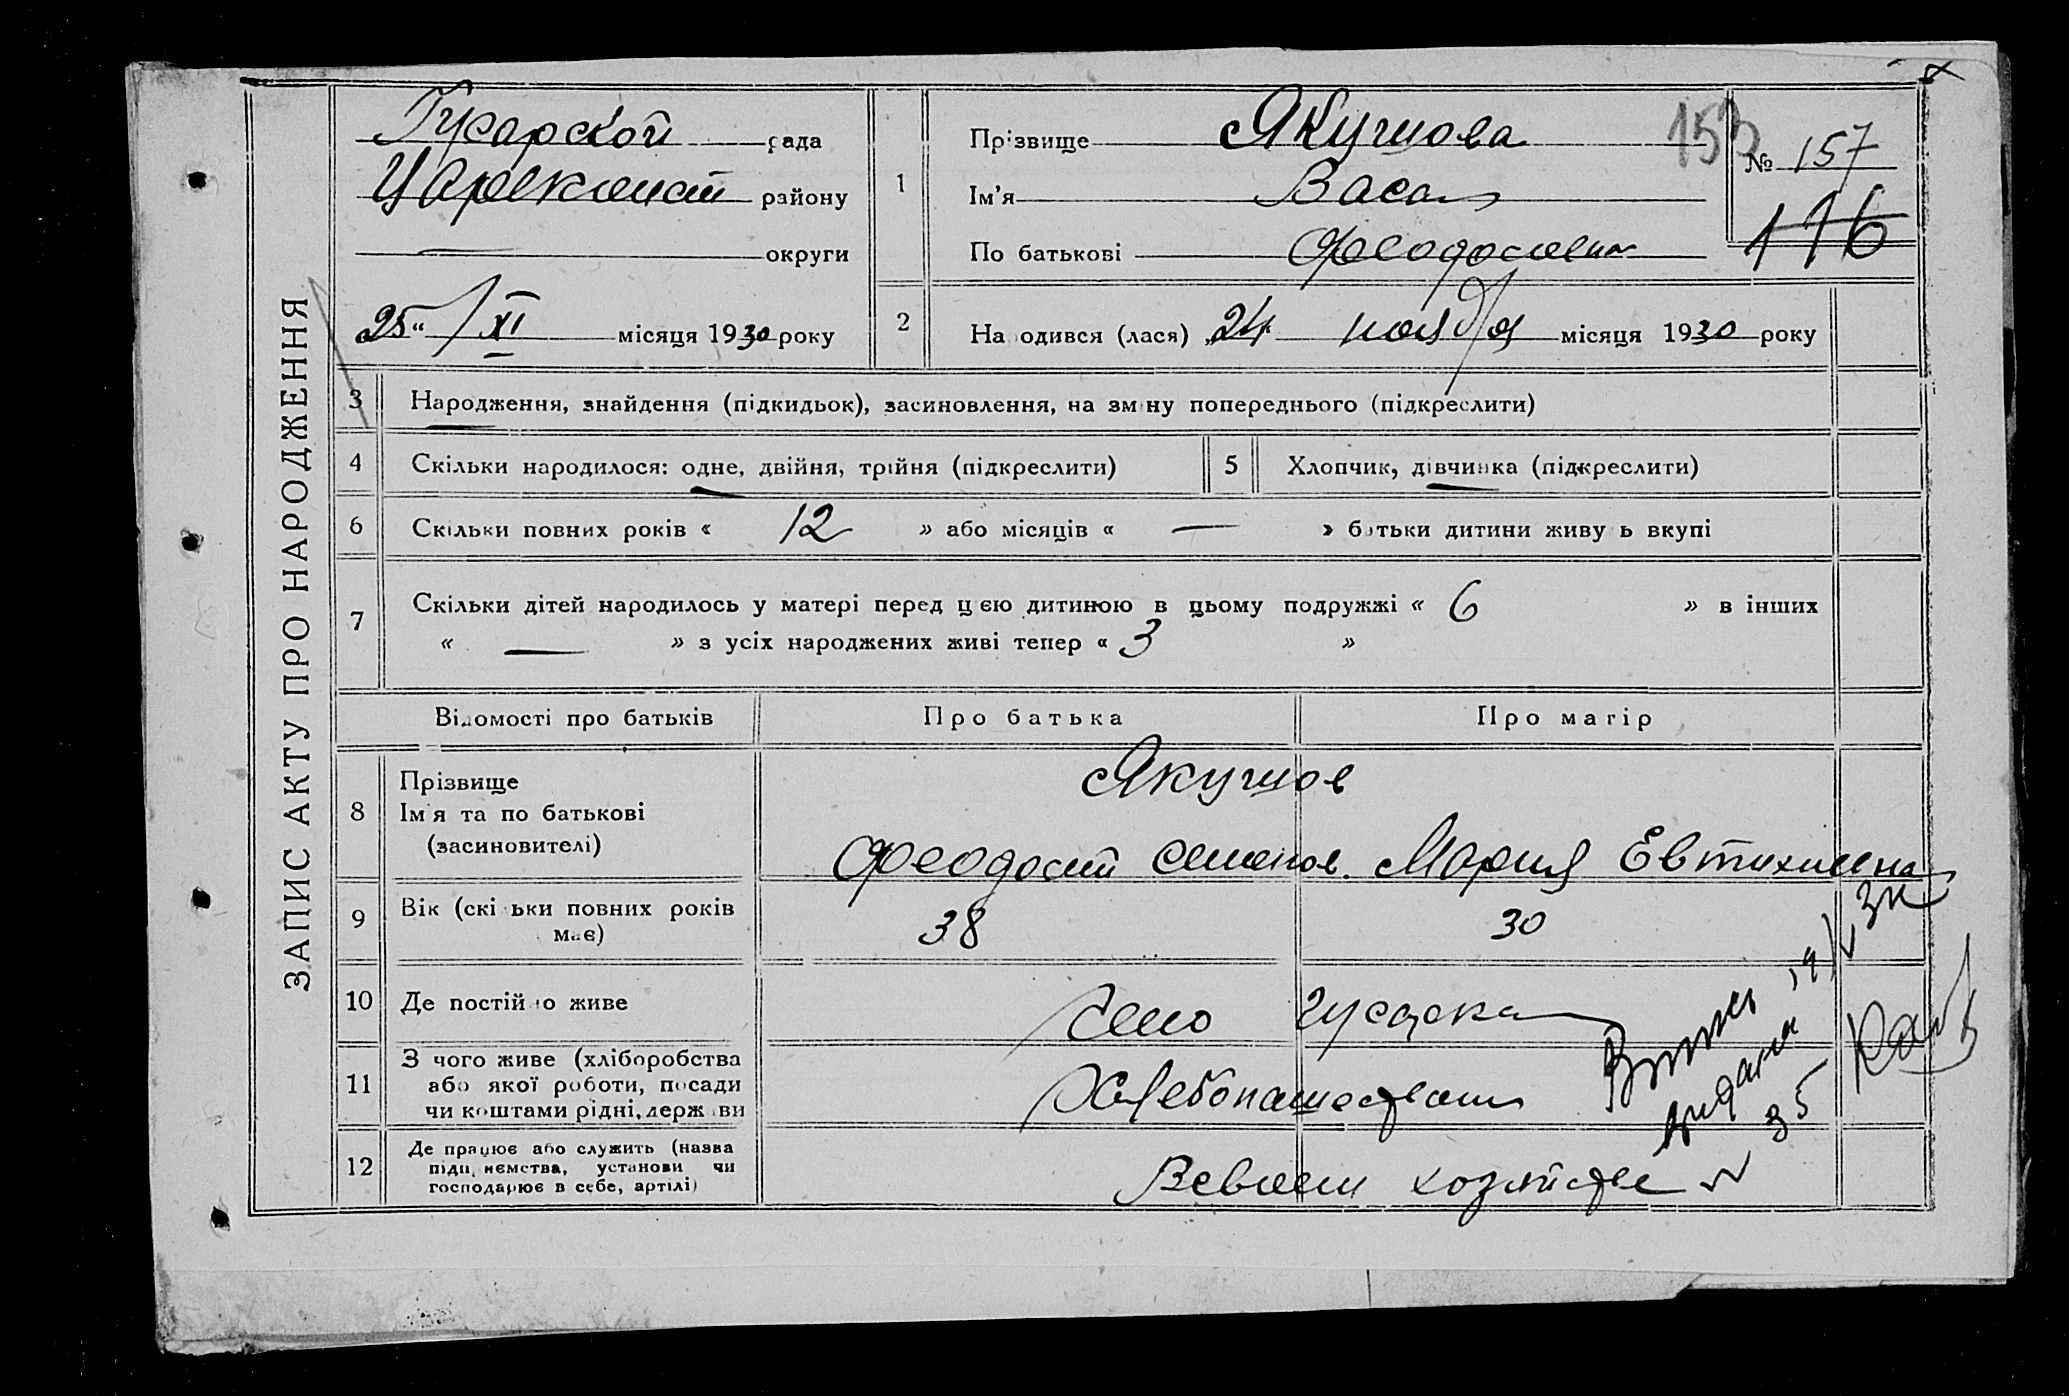 ЗАПИС АКТУ ПРО НАРОДЖЕННЯ
Гусарской рада
району
округи
25 / XI місяця 1930 року
1
Прізвище Якушова
Ім'я
По батькові
153
№ 157
116
2
Народився (лася) „24 ноября місяця 1930 року
3
Народження, знайдення (підкидьок), засиновлення, на зміну попереднього (підкреслити)
4
Скільки народилося: одне, двійня, трійня (підкреслити)
5
Хлопчик, дівчинка (підкреслити)
6
Скільки повних років « 12 » або місяців « — » батьки дитини живуть вкупі
7
Скільки дітей народилось у матері перед цією дитиною в цьому подружжі « 6 » в інших
« — » з усіх народжених живі тепер « 3 »
Відомості про батьків
Про батька
Про матір
8
Прізвище
Ім'я та по батькові
(засиновителі)
Якушов
Феодосий Семенов. Мария Евтихиевна
9
Вік (скільки повних років
має)
38
30
10
Де постійно живе
село Гусарка
11
З чого живе (хліборобства
або якої роботи, посади
чи коштами рідні, держави
Хлебопашеством
12
Де працює або служить (назва
підприємства, установи чи
господарює в себе, артілі)
В своем хозяйстве
35